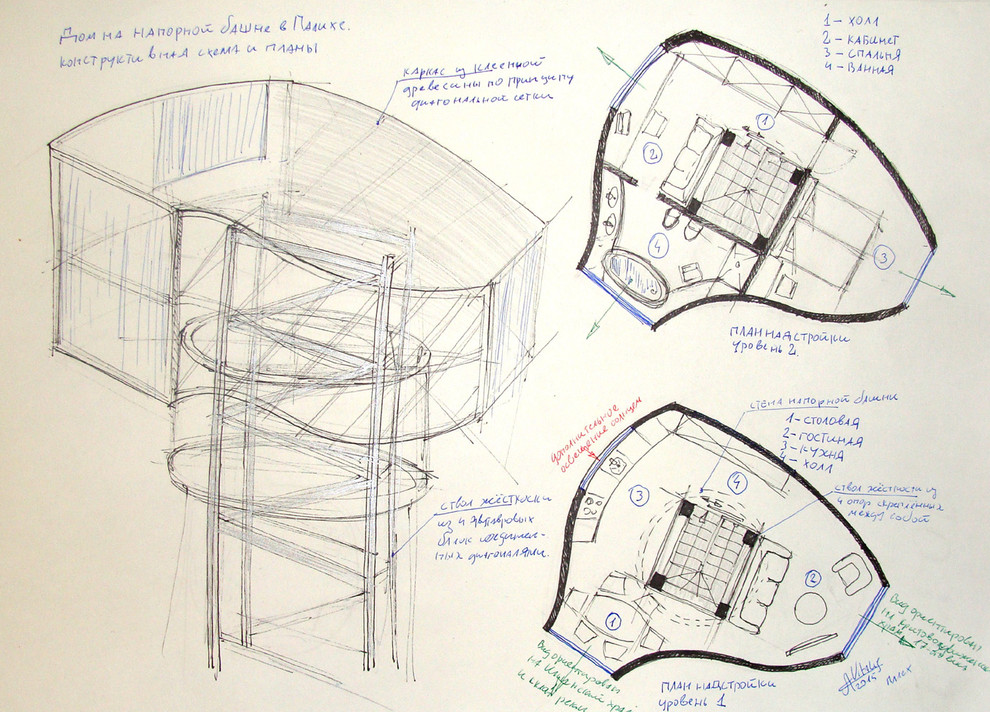 Дом на напорной башне в Палихе.
конструктивная схема и планы
каркас из клееной
древесины по принципу
диагональной сетки
ствол жёсткости
из 4 двутавровых
балок соединен-
ных диагоналями.
1 - холл
2 - кабинет
3 - спальня
4 - ванная
1
2
3
4
план надстройки
уровень 2.
дополнительное
освещение солнцем
стена напорной башни
1 - столовая
2 - гостиная
3 - кухня
4 - холл
ствол жёсткости из
4 опор скреплённых
между собой
3
4
2
1
Вид ориентирован
на
и реки
план надстройки
уровень 1
Вид ориентирован
на
храм 17-
2015